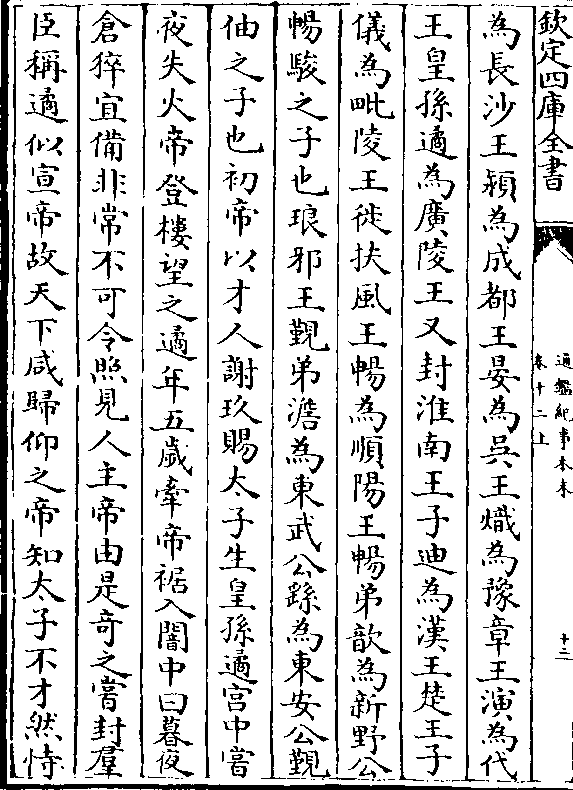 欽定四庫全書
通鑑紀事本末
卷十二上
十三
為長沙王穎為成都王晏為吳王熾為豫章王演為代
王皇孫遹為廣陵王又封淮南王子迪為漢王楚王子
儀為毗陵王徙扶風王暢為順陽王暢弟歆為新野公
暢駿之子也琅邪王覲弟澹為東武公繇為東安公覲
伷之子也初帝以才人謝玖賜太子生皇孫遹宫中嘗
夜失火帝登樓望之遹年五歲牽帝裾入闇中曰暮夜
倉猝宜備非常不可令照見人主帝由是奇之嘗封羣
臣稱遹似宣帝故天下咸歸仰之帝知太子不才然恃